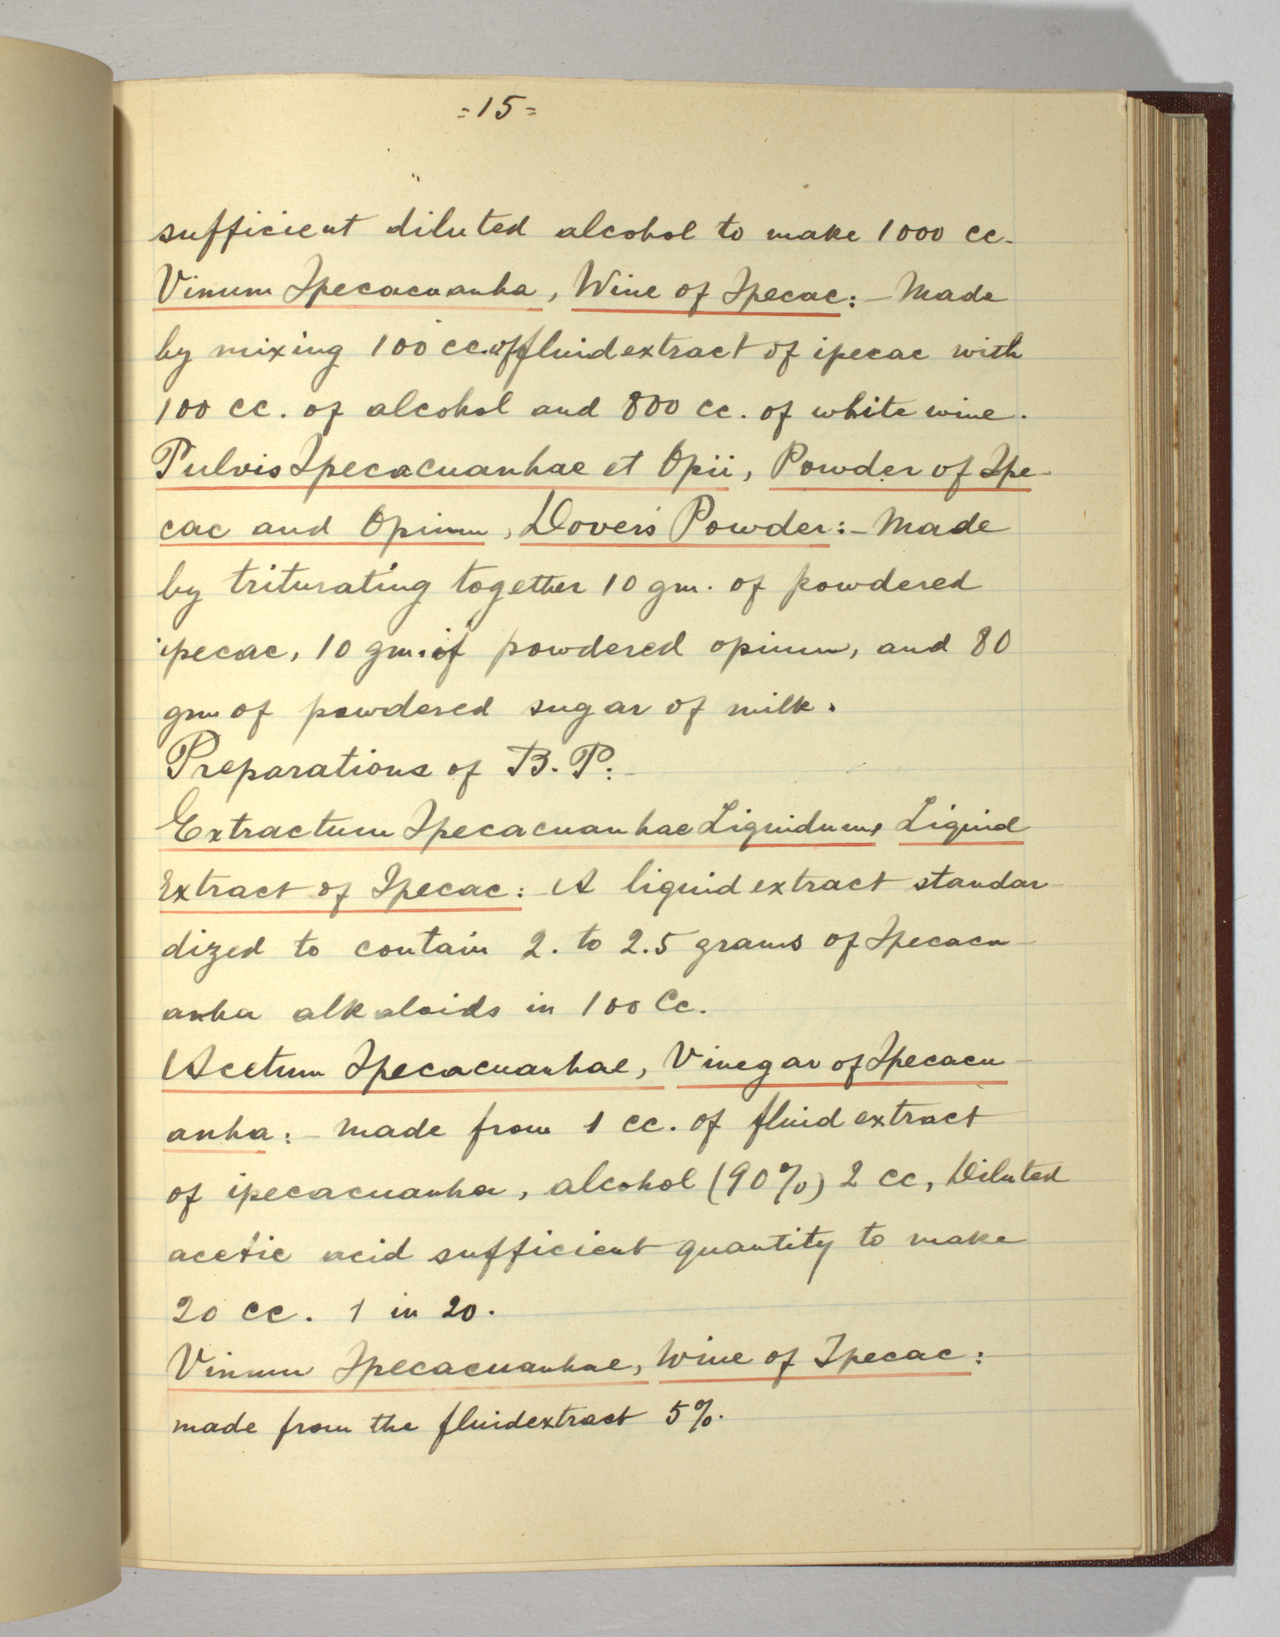 =15=
sufficient diluted alcohol to make 1000 cc.
Vinum Ipecacuanha, Wine of Ipecac:- Made
by mixing 100 cc. of fluidextract of ipecac with
100 cc. of alcohol and 800 cc. of white wine.
Pulvis Ipecacuanhae et Opii, Powder of Ipe-
cac and Opium, Dover's Powder:- Made
by triturating together 10 gm. of powdered
ipecac, 10 gm. of powdered opium, and 80
gm of powdered sugar of milk.
Preparations of B.P:-
Extractum Ipecacuanhae Liquidum, Liquid
Extract of Ipecac: A liquid extract standar-
dized to contain 2. to 2.5 grams of Ipecacu-
anha alkaloids in 100 Cc.
Acetum Ipecacuanhae, Vinegar of Ipecacu-
anha:- made from 1 cc. of fluidextract
of ipecacuanha, alcohol (90%) 2 cc, Diluted
acetic acid sufficient quantity to make
20 cc. 1 in 20.
Vinum Ipecacuanhae, Wine of Ipecac:
made from the fluidextract 5%.